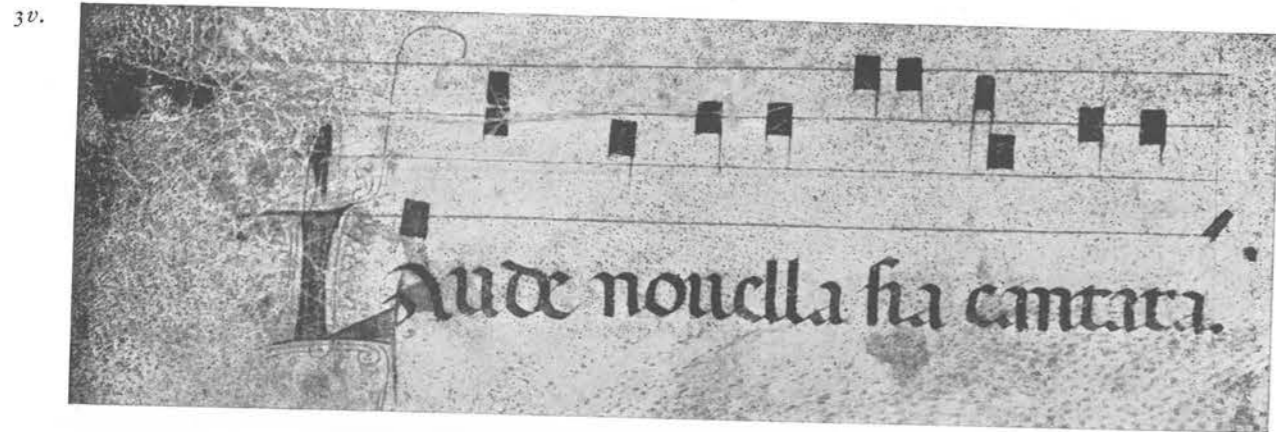 3v.
Laude nouella sia cantata.